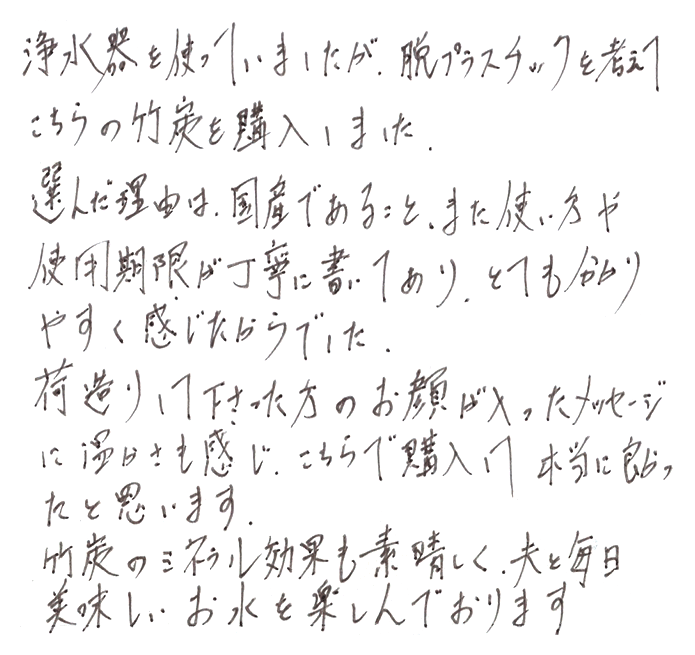 浄水器を使っていましたが、脱プラスチックを考えて
こちらの竹炭を購入しました.
選んだ理由は、国産であること、また使い方や
使用期限が丁寧に書いてあり、とても分かり
やすく感じたからでした.
荷造りして下さった方のお顔が入ったメッセージ
に温かさも感じ、こちらで購入して本当に良かっ
たと思います.
竹炭のミネラル効果も素晴しく、夫と毎日
美味しいお水を楽しんでおります